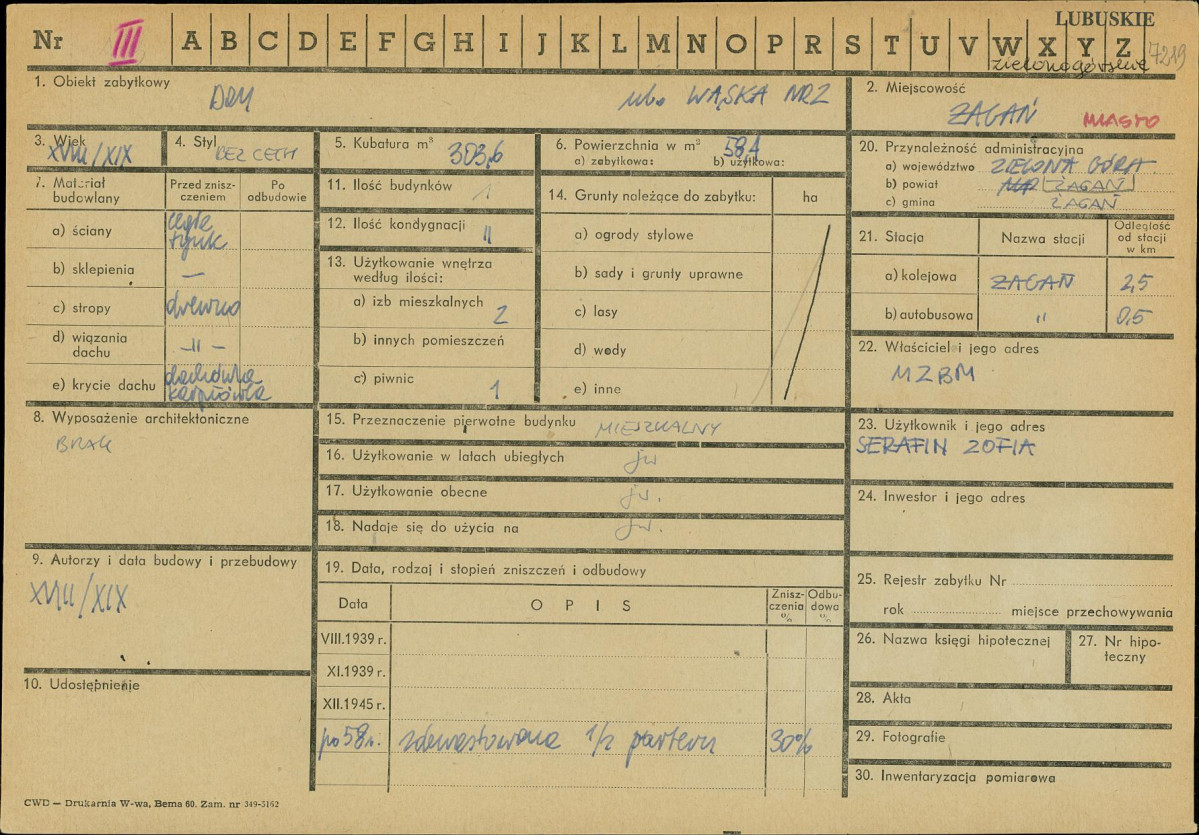 LUBUSKIE
Nr III A B C D E F G H I J K L M N O P R S T U V W X Y Z 7219
zielonogórskie
1. Obiekt zabytkowy
DOM ulica WĄSKA NR 2
2. Miejscowość
ŻAGAŃ MIASTO
3. Wiek
XVIII/XIX
4. Styl
BEZ CECH
5. Kubatura m³ 303,6
6. Powierzchnia w m² 58,4
a) zabytkowa: b) użytkowa:
20. Przynależność administracyjna
a) województwo ZIELONA GÓRA
b) powiat ŻAGAŃ
c) gmina ŻAGAŃ
7. Materiał budowlany
Przed znisz-
czeniem
Po
odbudowie
a) ściany cegła
tynk
b) sklepienia —
c) stropy drewno
d) wiązania
dachu -II-
e) krycie dachu dachówka
karpiówka
11. Ilość budynków 1
12. Ilość kondygnacji II
13. Użytkowanie wnętrza
według ilości:
a) izb mieszkalnych 2
b) innych pomieszczeń
c) piwnic 1
14. Grunty należące do zabytku: ha
a) ogrody stylowe
b) sady i grunty uprawne
c) lasy
d) wody
e) inne
21. Stacja Nazwa stacji
Odległość
od stacji
w km
a) kolejowa ŻAGAŃ 2,5
b) autobusowa " 0,5
22. Właściciel i jego adres
MZBM
8. Wyposażenie architektoniczne
BRAK
15. Przeznaczenie pierwotne budynku MIESZKALNY
16. Użytkowanie w latach ubiegłych jw
17. Użytkowanie obecne jw.
18. Nadaje się do użycia na jw.
23. Użytkownik i jego adres
SERAFIN ZOFIA
24. Inwestor i jego adres
9. Autorzy i data budowy i przebudowy
XVIII/XIX
10. Udostępnienie
19. Data, rodzaj i stopień zniszczeń i odbudowy
Data OPIS
Znisz-
czenia
%
Odbu-
dowa
%
VIII.1939 r.
XI.1939 r.
XII.1945 r.
po 58 r. zdewastowana 1/2 parteru 30%
25. Rejestr zabytku Nr
rok miejsce przechowywania
26. Nazwa księgi hipotecznej
27. Nr hipo-
teczny
28. Akta
29. Fotografie
30. Inwentaryzacja pomiarowa
CWD — Drukarnia W-wa, Bema 60. Zam. nr 349-5162